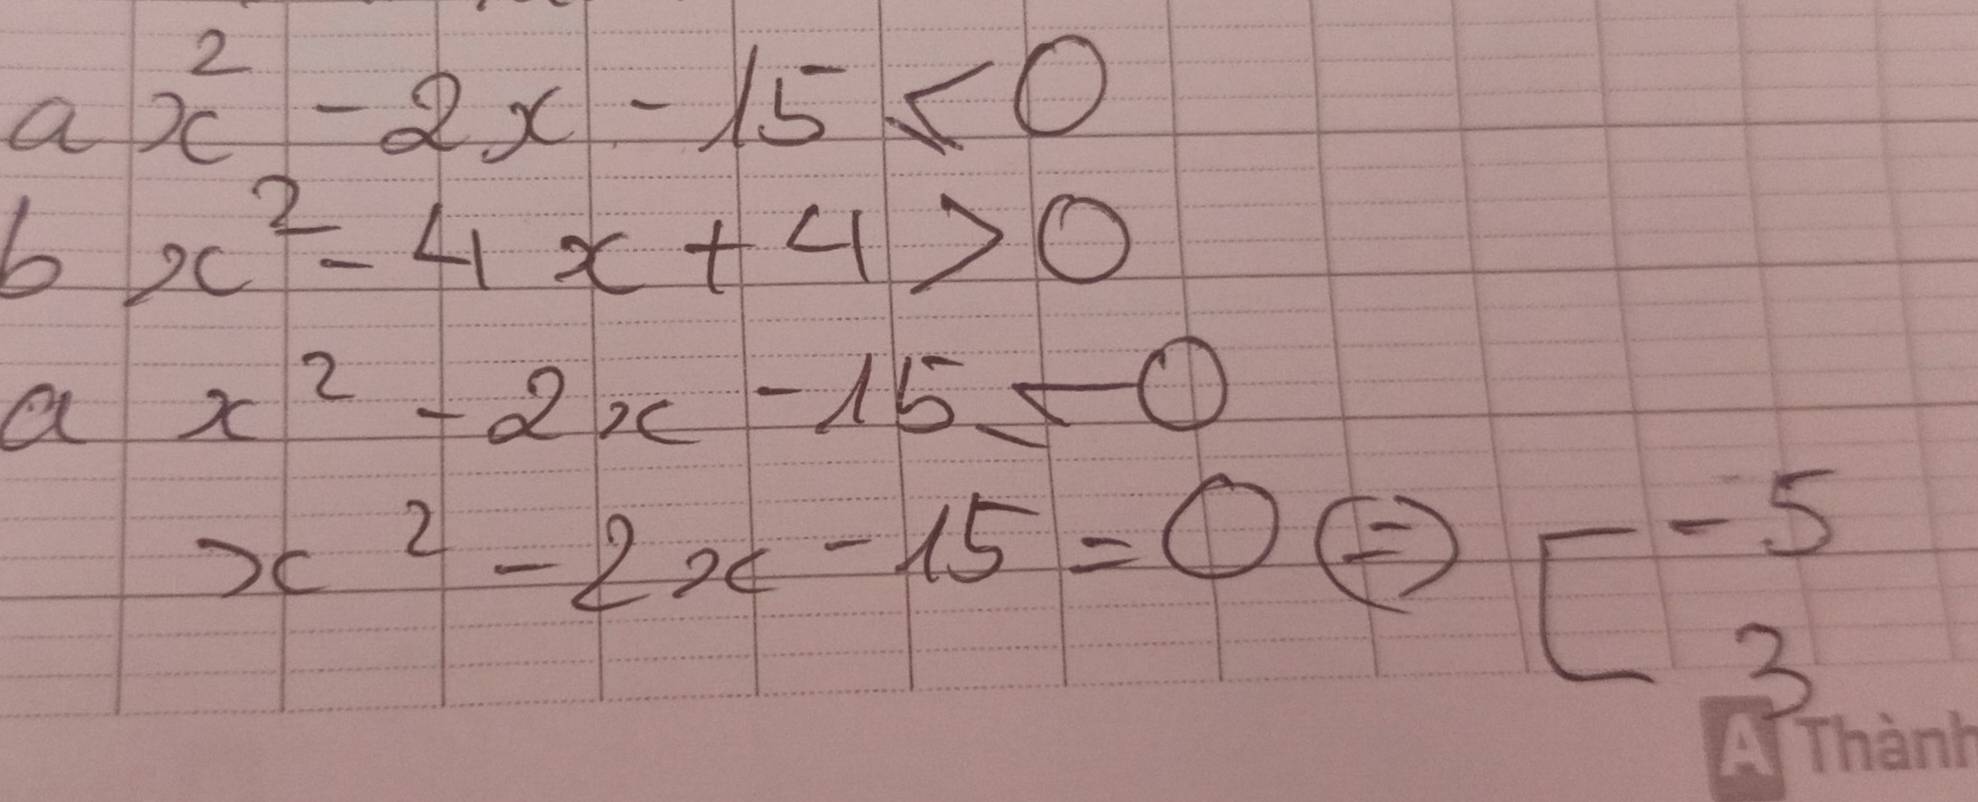 a x² - 2x - 15 < 0
b x² - 4x + 4 > 0
a x² - 2x - 15 < 0
x² - 2x - 15 = 0 ⇔ [ -5
3
A Thành